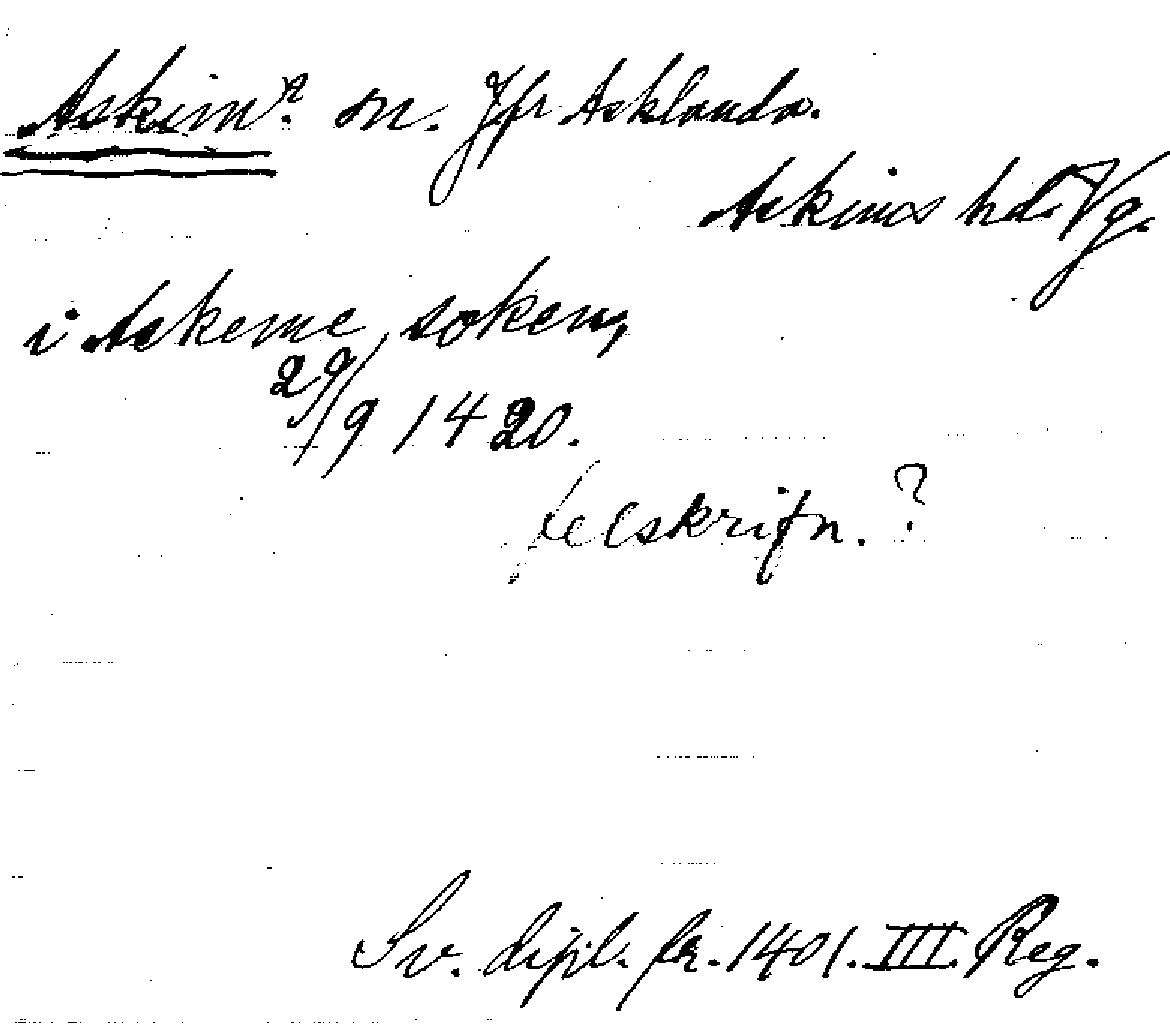 Askim? sn. Jfr Asklanda.
Askims hd. Vg.
i Askeme soken,
29/9 1420.
felskrifn. ?
Sv. dipl. fr. 1401. III. Reg.